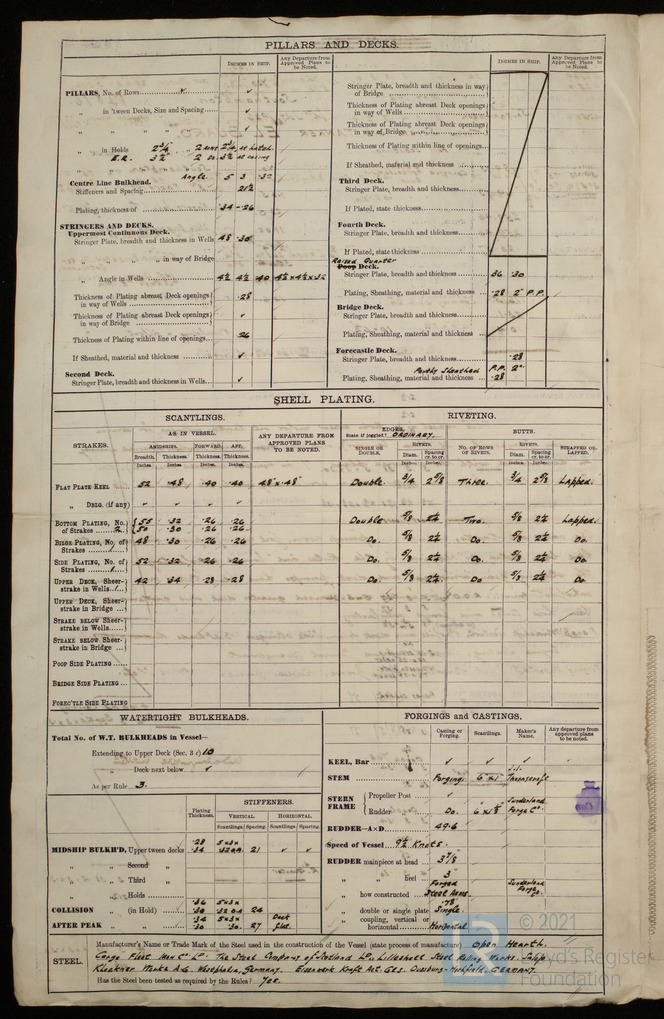 PILLARS AND DECKS.
INCHES IN SHIP.
Any Departure from Approved Plans to be Noted.
PILLARS, No. of Rows ✓
„ in 'tween Decks, Size and Spacing ✓
„ „ „ ✓
„ in Holds 2¾ „ 2 2¾ at hatch.
E.R. 3½ 2 Do. 3½ at casing
Angle 5 3 .32
Centre Line Bulkhead.
Stiffeners and Spacing 21½
Plating, thickness of .34 - .26
STRINGERS AND DECKS.
Uppermost Continuous Deck.
Stringer Plate, breadth and thickness in Wells 48 .30
„ „ „ „ in way of Bridge
„ Angle in Wells 4½ 4½ .40 4½ x 4½ x .32
Thickness of Plating abreast Deck openings in way of Wells .28
Thickness of Plating abreast Deck openings in way of Bridge ✓
Thickness of Plating within line of openings .26
If Sheathed, material and thickness ✓
Second Deck.
Stringer Plate, breadth and thickness in Wells ✓
INCHES IN SHIP.
Any Departure from Approved Plans to be Noted.
Stringer Plate, breadth and thickness in way of Bridge
Thickness of Plating abreast Deck openings in way of Wells
Thickness of Plating abreast Deck openings in way of Bridge
Thickness of Plating within line of openings
If Sheathed, material and thickness
Third Deck.
Stringer Plate, breadth and thickness
If Plated, state thickness
Fourth Deck.
Stringer Plate, breadth and thickness
If Plated, state thickness
Raised Quarter
Poop Deck.
Stringer Plate, breadth and thickness 36 .30
Plating, Sheathing, material and thickness .28 2" P.P.
Bridge Deck.
Stringer Plate, breadth and thickness
Plating, Sheathing, material and thickness
Forecastle Deck.
Stringer Plate, breadth and thickness .28
Partly Sheathed P.P. 2"
Plating, Sheathing, material and thickness .28
SHELL PLATING.
SCANTLINGS.
RIVETING.
STRAKES.
AS IN VESSEL.
ANY DEPARTURE FROM APPROVED PLANS TO BE NOTED.
EDGES.
State if joggled? ORDINARY.
BUTTS.
AMIDSHIPS.
FORWARD.
AFT.
SINGLE OR DOUBLE.
RIVETS.
NO. OF ROWS OF RIVETS.
RIVETS.
STRAPPED OR LAPPED.
Breadth. Thickness. Thickness. Thickness.
Diam. Spacing cr. to cr. Diam. Spacing cr. to cr.
Inches Inches Inches Inches Inches Inches Inches Inches
FLAT PLATE KEEL 52 .48 .40 .40 48" x .48" Double. ¾ 2⅝ Three. ¾ 2⅝ Lapped.
„ DBLG. (if any) ✓ ✓ ✓ ✓
BOTTOM PLATING, No. of Strakes 2 55 .32 .26 .26 Double ⅝ 2¼ Two. ⅝ 2¼ Lapped.
50 .30 .26 .26
BILGE PLATING, No. of Strakes 1 48 .30 .26 .26 Do. ⅝ 2¼ Do. ⅝ 2¼ Do.
SIDE PLATING, No. of Strakes 1 52 .32 .26 .26 Do. ⅝ 2¼ Do. ⅝ 2¼ Do.
UPPER DECK, Sheer-strake in Wells 1 42 .34 .28 .28 Do. ⅝ 2¼ Do ⅝ 2¼ Do
UPPER DECK, Sheer-strake in Bridge
STRAKE BELOW Sheer-strake in Wells
STRAKE BELOW Sheer-strake in Bridge
POOP SIDE PLATING
BRIDGE SIDE PLATING
FOREC'TLE SIDE PLATING
WATERTIGHT BULKHEADS.
Total No. of W.T. BULKHEADS in Vessel—
Extending to Upper Deck (Sec. 3 c)
„ Deck next below ✓
As per Rule 3.
Plating Thickness.
STIFFENERS.
VERTICAL. HORIZONTAL.
Scantlings Spacing. Scantlings Spacing.
MIDSHIP BULKH'D, Upper tween decks .28 5x3x
.34 .32 21 ✓ ✓
„ „ Second „
„ „ Third „
„ „ Holds
COLLISION „ (in Hold) .36 5x3x
.30 .32 24
AFTER PEAK „ „ .34 5x3x Deck
.30 .30 27 flat.
FORGINGS and CASTINGS.
Casting or Forging. Scantlings. Maker's Name. Any departure from approved plans to be noted.
KEEL, Bar ✓ ✓ ✓
STEM Forging. 6" x 1" Thornycroft
STERN FRAME
Propeller Post ✓
Rudder „ Do. 6 x 1⅞ Sunderland Forge Co.
RUDDER—A×D 49.6
Speed of Vessel 9½ Knots.
RUDDER mainpiece at head 3⅞
„ „ heel 3
„ how constructed Forged Steel Arms. Sunderland Forge Co.
„ double or single plate .78" Single.
„ coupling, vertical or horizontal Horizontal
STEEL.
Manufacturer's Name or Trade Mark of the Steel used in the construction of the Vessel (state process of manufacture) Open Hearth.
Cargo Fleet Iron Co. Ld. The Steel Company of Scotland Ld., Lilleshall Steel Rolling Works. Salop
Kloekner Works A.G. Westphalia, Germany. Eisenwerk Kraft Act. Ges. Duisburg-Hochfeld, Germany.
Has the Steel been tested as required by the Rules? Yes.
© 2021
Lloyd's Register
Foundation